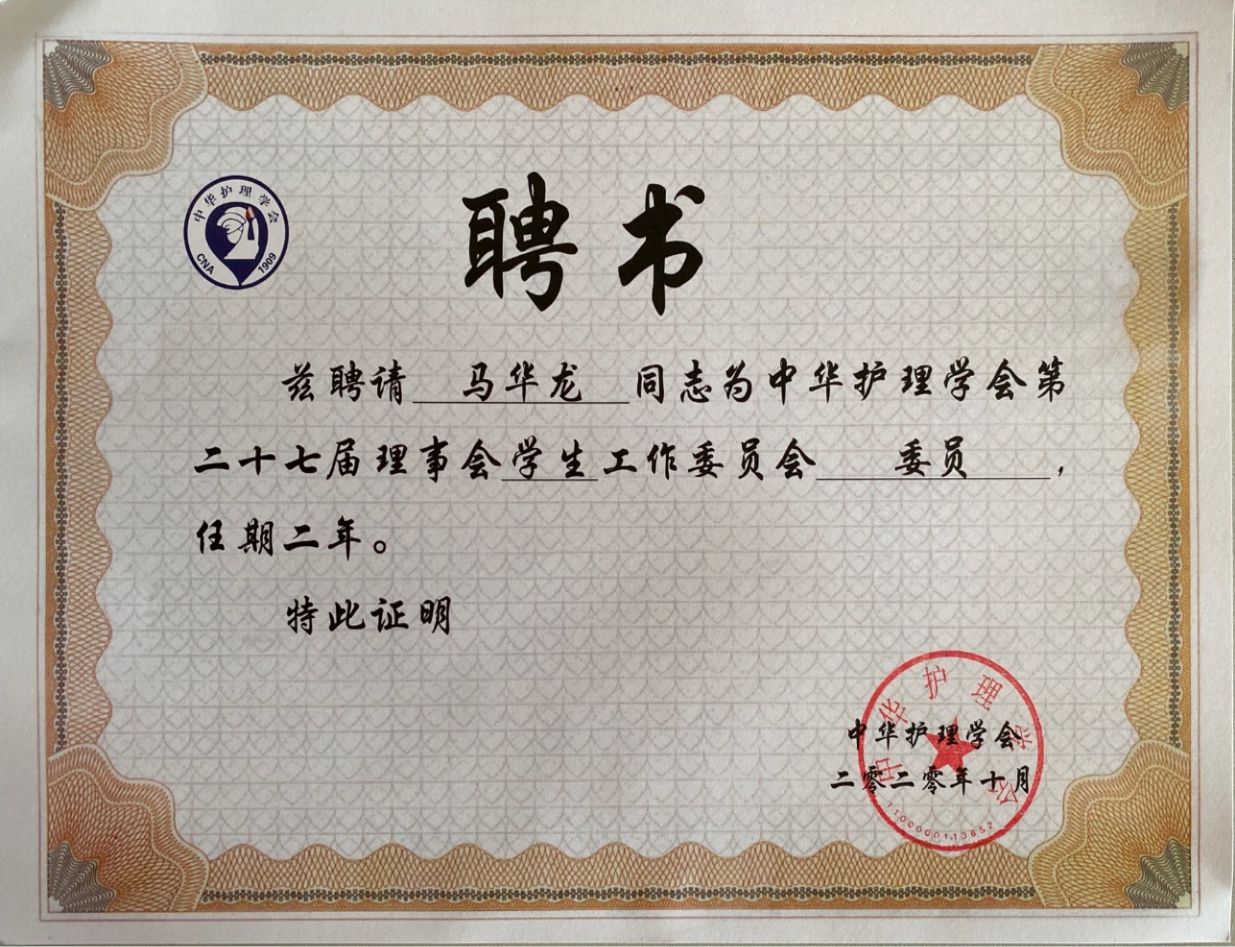 中华护理学会
CNA 1909
聘书
兹聘请 马华龙 同志为中华护理学会第
二十七届理事会学生工作委员会 委员 ,
任期二年。
特此证明
中华护理学会
中华护理学会
二零二零年十月
1100000113652